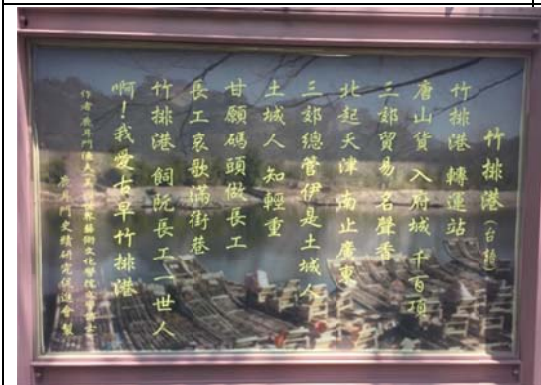 竹排港(台語)
竹排港 轉運站
唐山貨 入府城 千百項
三郊貿易 名聲香
北起天津 南止廣東
三郊總管伊是土城人
土城人 知輕重
甘願碼頭做長工
長工哀歌滿街巷
竹排港 飼阮長工一世人
啊!我愛古早竹排港
作者 鹿耳門漁夫 世界藝術文化學院文學博士
鹿耳門史蹟研究促進會製